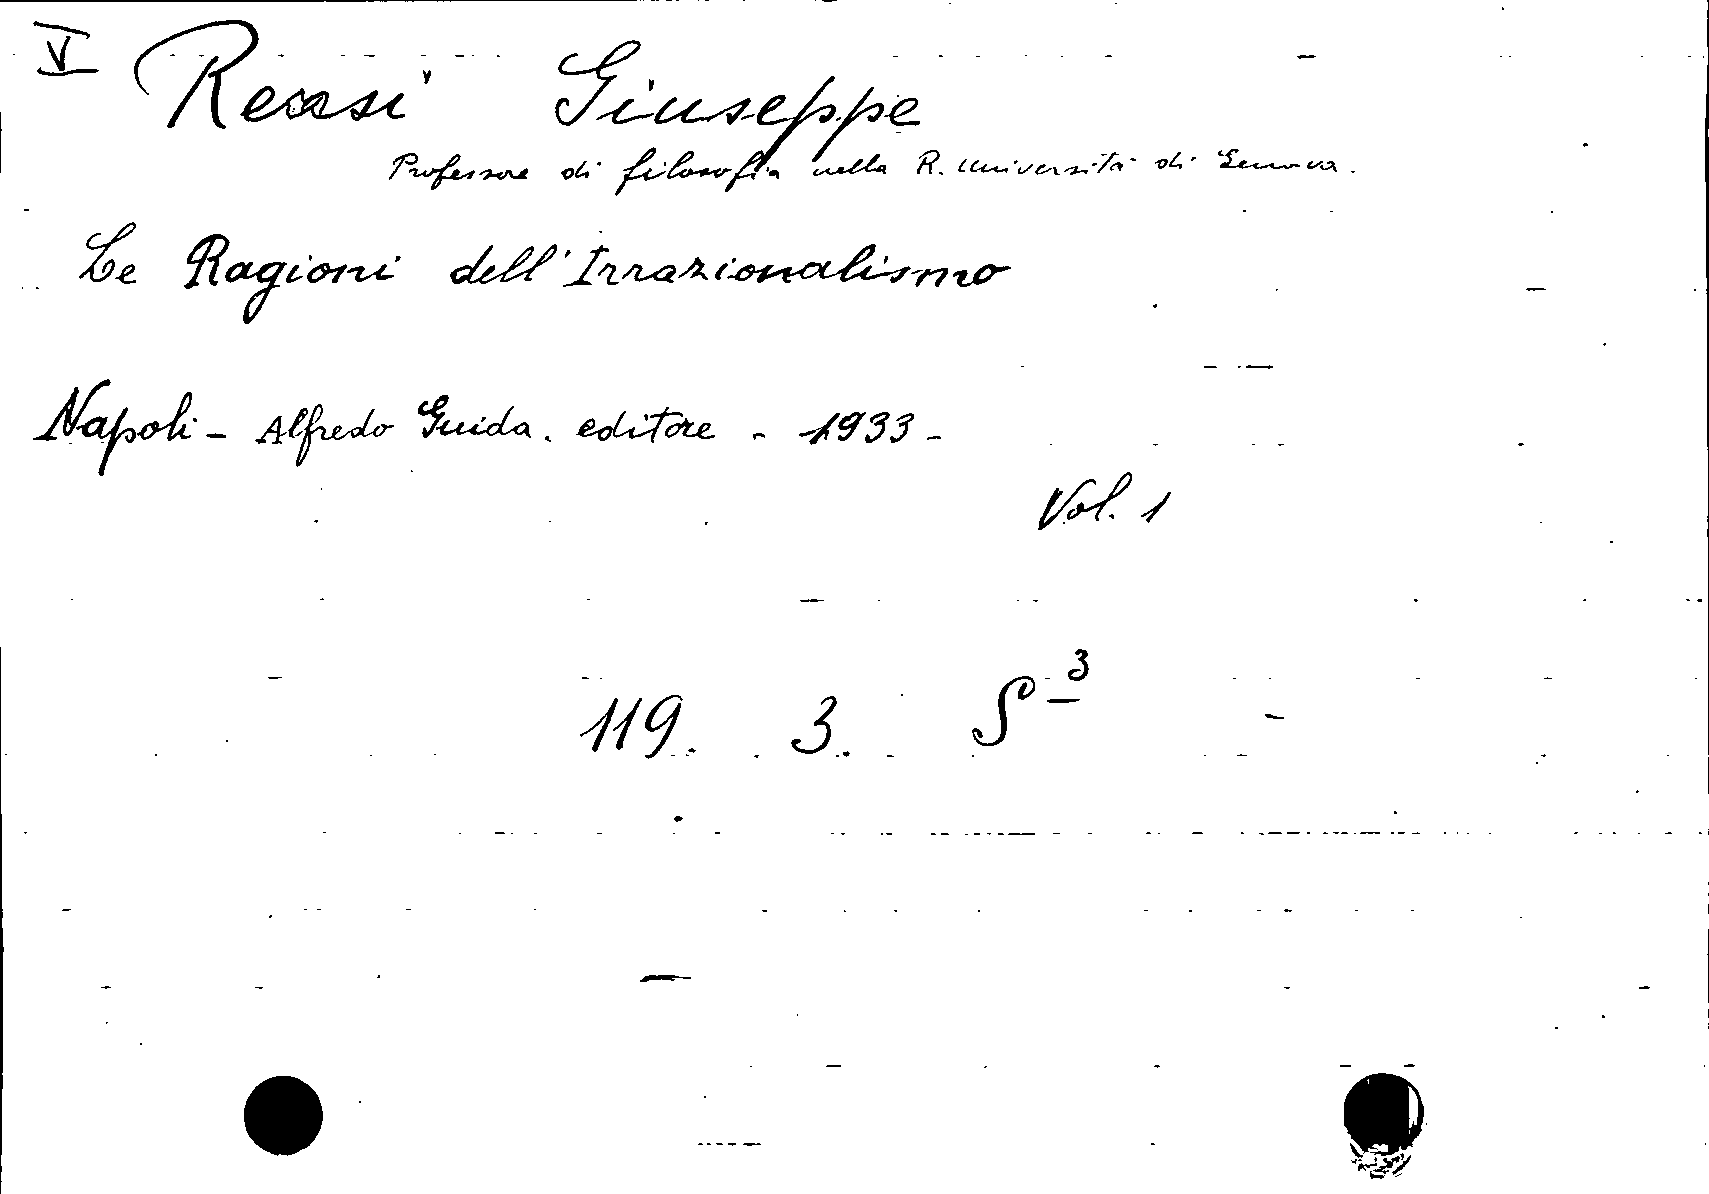 V Rensi Giuseppe
Professore di filosofia nella R. Università di Genova.
Le Ragioni dell'Irrazionalismo
Napoli - Alfredo Guida. editore - 1933 -
Vol. 1
119. 3. S - 3